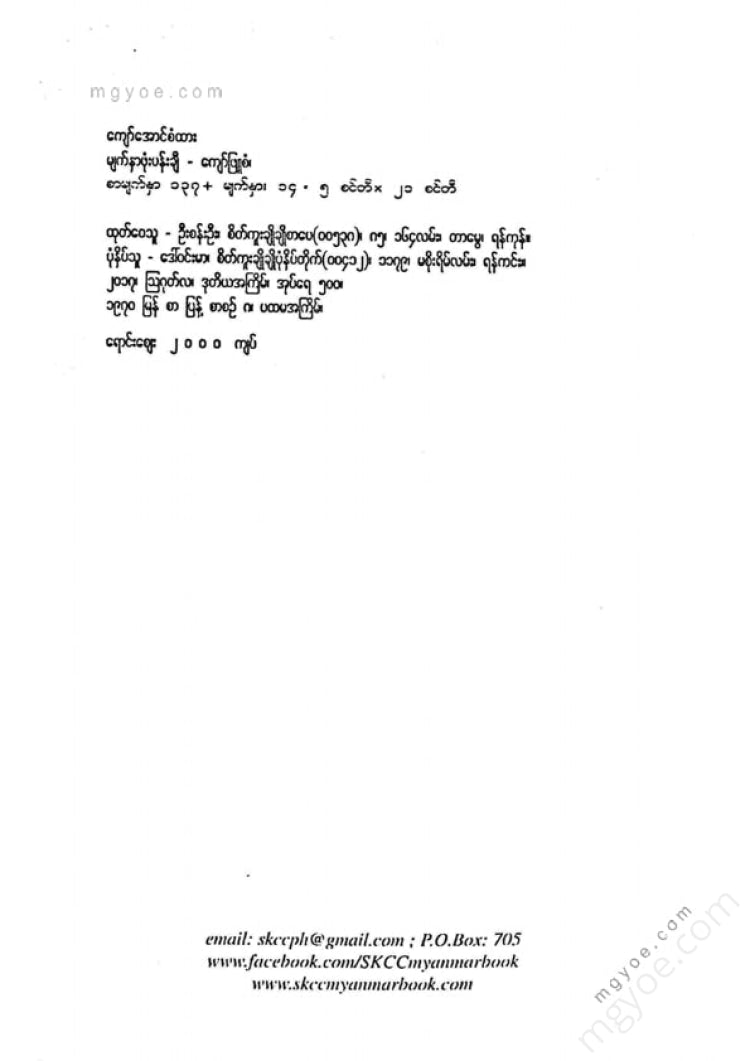 mgyoe.com
ကျော်အောင်စံထား
မျက်နှာဖုံးပန်းချီ - ကျော်ဖြူစံ၊
စာမျက်နှာ ၁၃၇+ မျက်နှာ၊ ၁၄.၅ စင်တီ× ၂၁ စင်တီ
ထုတ်ဝေသူ - ဦးစန်းဦး၊ စိတ်ကူးချိုချိုစာပေ(၀၀၅၃၈)၊ ၈၅၊ ၁၆၄လမ်း၊ တာမွေ၊ ရန်ကုန်။
ပုံနှိပ်သူ - ဒေါ်ဝင်းမာ၊ စိတ်ကူးချိုချိုပုံနှိပ်တိုက်(၀၀၄၁၂)၊ ၁၁၇၉၊ မစိုးရိမ်လမ်း၊ ရန်ကင်း။
၂၀၁၇၊ ဩဂုတ်လ၊ ဒုတိယအကြိမ်၊ အုပ်ရေ ၅၀၀၊
၁၉၇၀ မြန် စာ ပြန့် စာစဉ် ၈၊ ပထမအကြိမ်၊
ရောင်းဈေး ၂၀၀၀ ကျပ်
email: skccph@gmail.com ; P.O.Box: 705
www.facebook.com/SKCCmyanmarbook
www.skccmyanmarbook.com
mgyoe.com
mgyoe.com